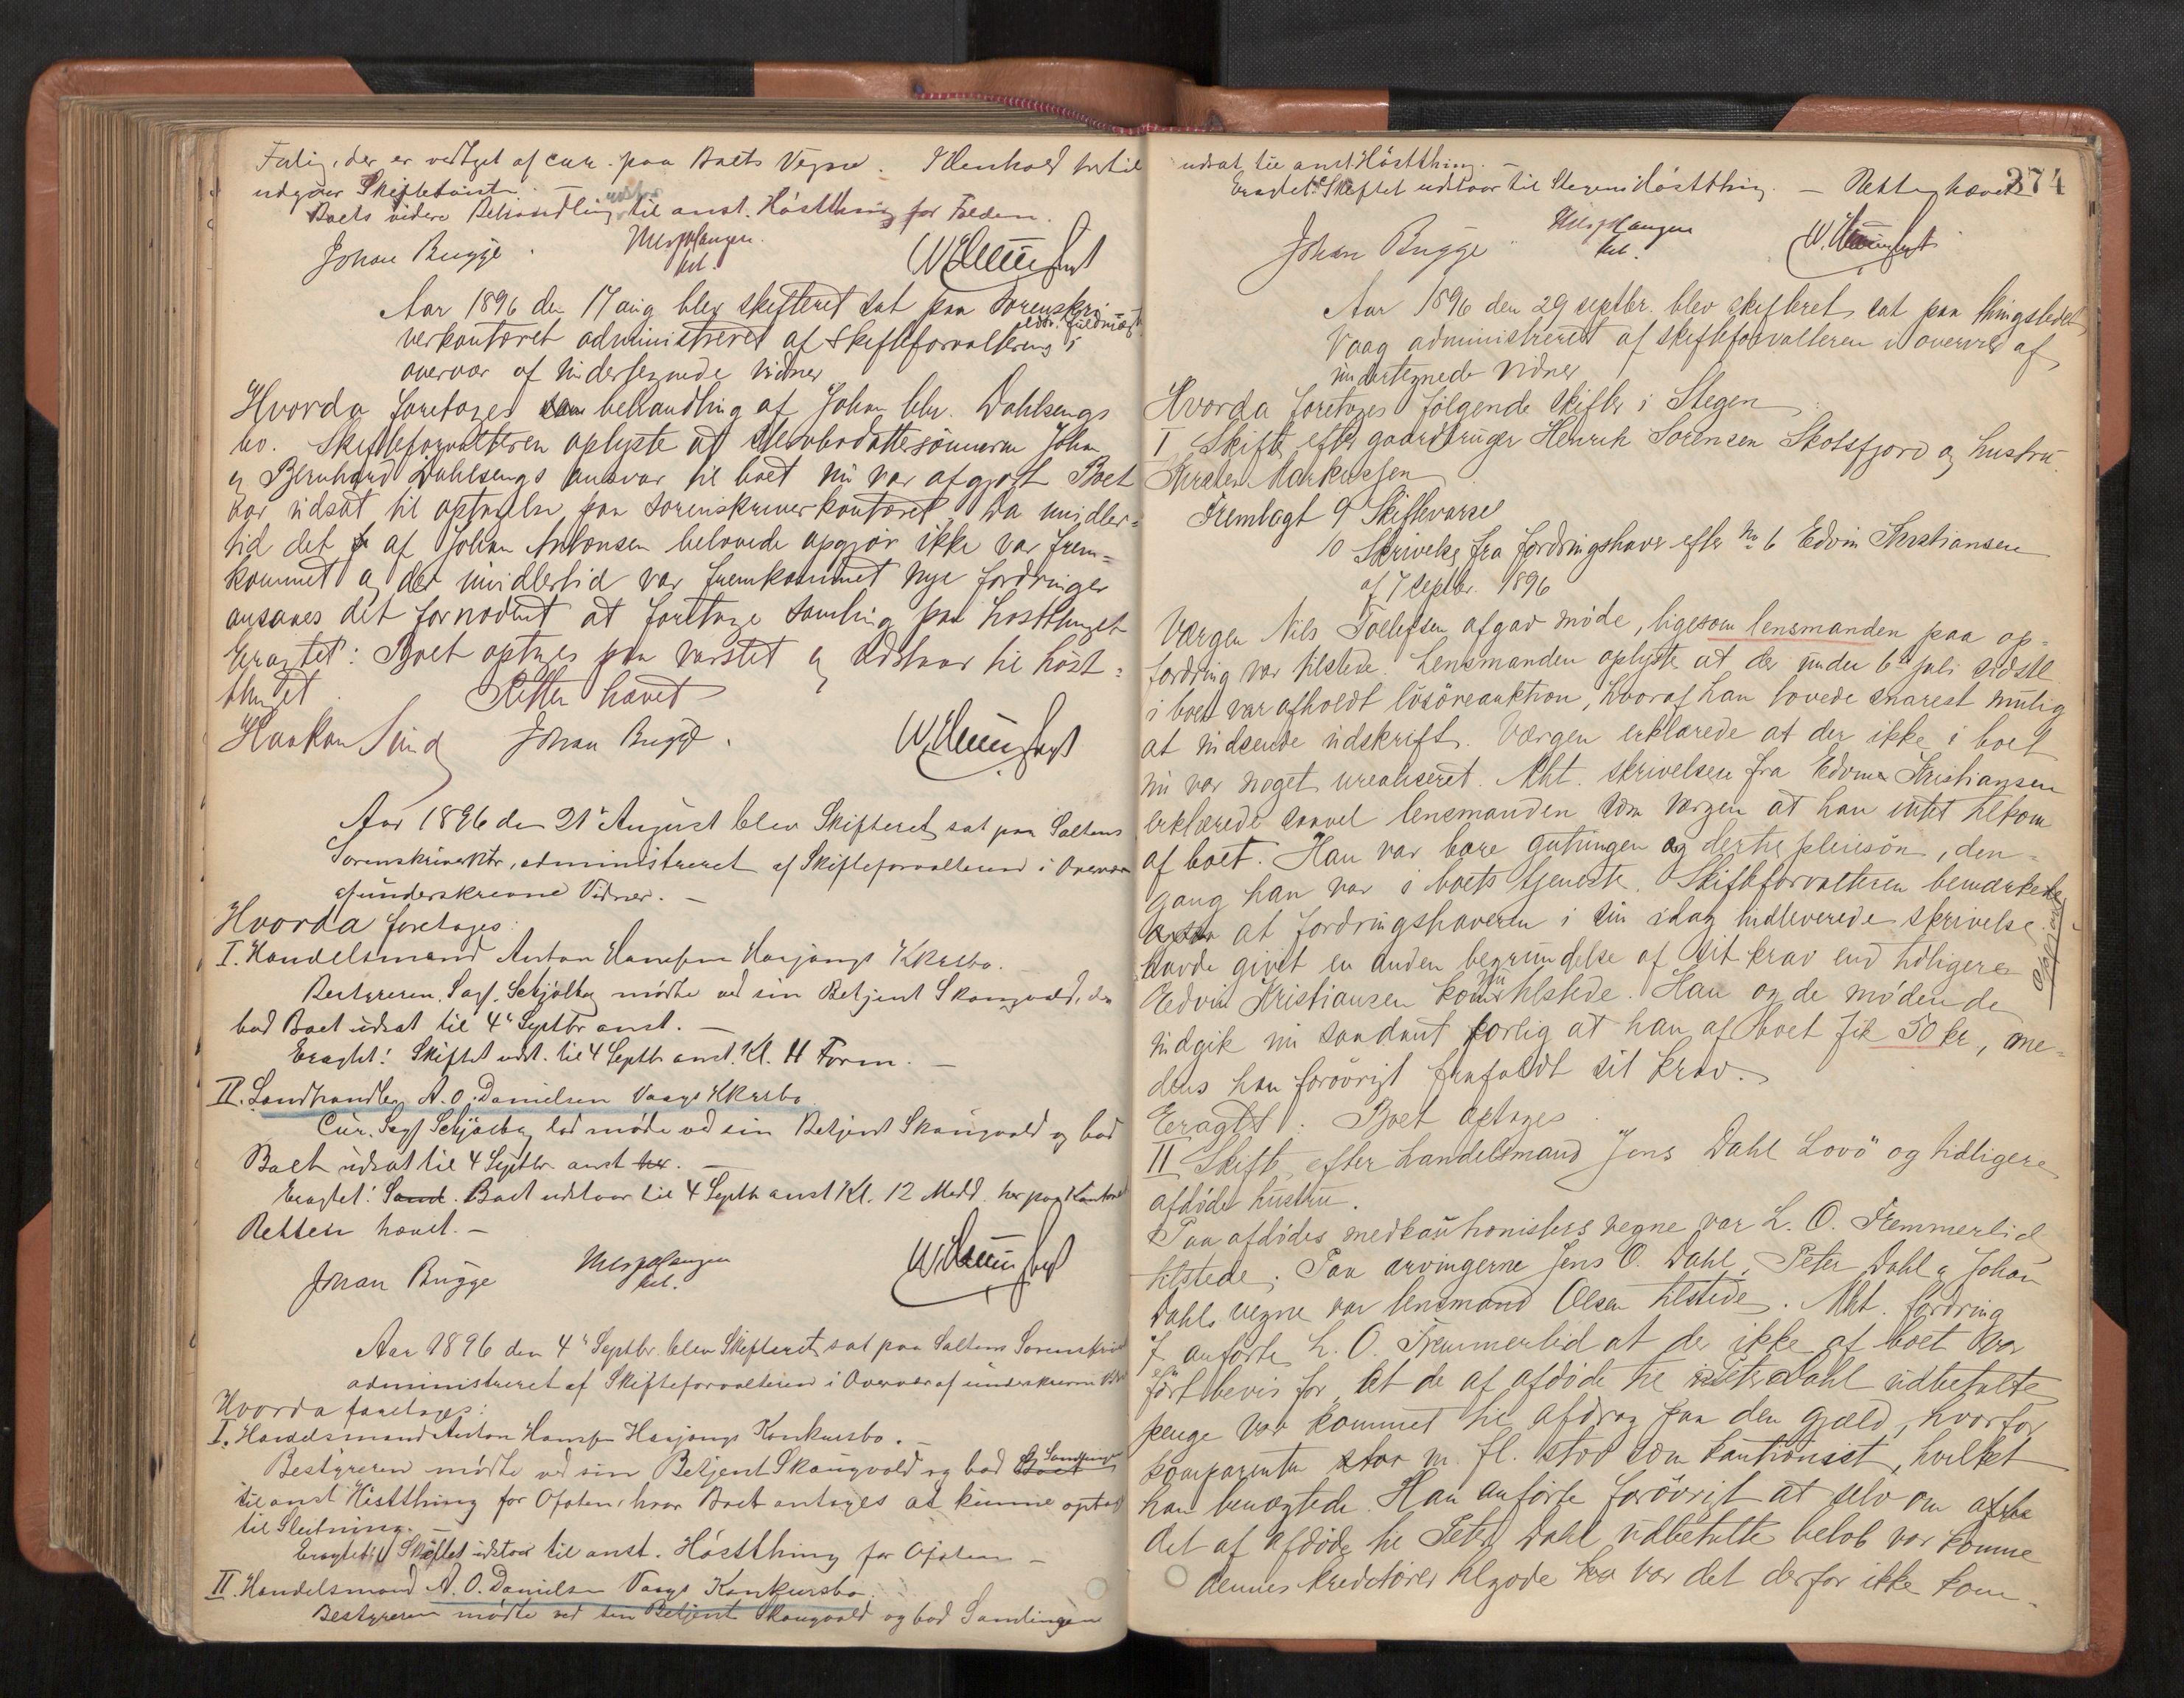 Forlig, der er vedtaget af cur. paa Boets Vegne. I Henhold hertil
udgaar Skifteboits
Boets videre Behandling udstaar til anst. Høstthing for Folden.
Johan Bugge.
Aar 1896 den 17 aug blev skifteret sat paa Sorenskri
verkontoret administreret af Skifteforvalterens edsv. fuldmægt. i
overvær af undertegnede vidner
Hvorda foretoges behandling af Johan Chr. Dahlsengs
bo. Skifteforvalteren oplyste at Stervbodattersønnerne Johan
og Bernhard Dahlsengs ansvar til boet nu var afgjort Boet
var udsat til optagelse paa Sorenskriverkontoret Da imidler=
tid det af Johan Antonsen belovede opgjør ikke var frem=
kommet og der imidlertid var fremkommet nye fordringer
ansaaes det fornødent at foretage samling paa høstthinget
Eragtet: Boet optages paa varslet og udstaar til høst=
thinget. Retten hævet
Haakon Sund Johan Bugge.
Aar 1896 den 21de August blev Skifteret sat paa Saltens
Sorenskriverktr, administreret af Skifteforvalteren i Overvær
af underskrevne Vidner. —
Hvorda foretoges:
I. Handelsmand Anton Hansen Harjangs Kkrsbo.
Bestyreren, Sagf. Schjølberg mødte ved sin Betjent Skaugvold, der
bad Boet udsat til 4de Septbr anst. —
Eragtet: Skiftet udst. til 4 Septb anst. Kl. 11 Form. —
II. Landhandler A. O. Danielsen Vaags Kkrsbo
Cur. Sagf Schjølberg lod møde ved sin Betjent Skaugvold og bad
Boet udsat til 4 Septbr anst her. —
Eragtet: Sand. Boet udstaar til 4 Septb anst Kl. 12 Midd. her paa Kontoret
Retten hævet. —
Johan Bugge
Aar 1896 den 4de Septbr. blev Skifteret sat paa Saltens Sorenskriv
administreret af Skifteforvalteren i Overvær af underskrevne
Hvorda foretoges:
I. Handelsmand Anton Hansen Harjangs Konkursbo. —
Bestyreren mødte ved sin Betjent Skaugvold og bad Boet Samlingen
til anst Høstthing for Ofoten, hvor Boet antages at kunne optages
til Slutning. —
Eragtet: Skiftet udstaar til anst. Høstthing for Ofoten —
II. Handelsmand A. O. Danielsen Vaags Konkursbo.
Bestyreren mødte ved sin Betjent Skaugvold og bad Samlingen
374
udsat til anst Høstthing. —
Eragtet: Skiftet udstaar til Stegens Høstthing. — Retten hævet
Johan Bugge
Aar 1896 den 29 septbr. blev skifteret sat paa thingstedet
Vaag administreret af skifteforvalteren i overvær af
undertegnede vidner
Hvorda foretoges følgende skifter i Stegen
I Skifte efter gaardbruger Henrik Sørensen Skotsfjord og hustru
Markussen
Fremlagt 9 Skiftevarsel
10 Skrivelse fra fordringshaver efter No 6 Edvin Kristiansen
af 7 septbr. 1896
Værgen Nils Tollefsen afgav møde, ligesom lensmanden paa op=
fordring var tilstede. Lensmanden oplyste at der under 6te juli sidstl.
i boet var afholdt løsøreauktion, hvoraf han lovede snarest mulig
at indsende udskrift. Værgen erklærede at der ikke i boet
nu var noget urealiseret. Aht. skrivelsen fra Edvin Kristiansen
erklærede saavel lensmanden som værgen at han intet tilkom
af boet. Han var bare gutungen og dertil pleiesøn, den=
gang han var i boets tjeneste. Skifteforvalteren bemærkede
at fordringshaveren i sin idag indleverede skrivelse
havde givet en anden begrundelse af sit krav end tidligere
Edvin Kristiansen kom nu tilstede. Han og de mødende
indgik nu saadant forlig at han af boet fik 50 kr, me=
dens han forøvrigt frafaldt sit krav.
Eragtet: Boet optages
II Skifte efter handelsmand Jens Dahl Lovø og tidligere
afdøde hustru.
Paa afdødes medkautionisters vegne var L. O. Fremmerlid
tilstede. Paa arvingerne Jens O. Dahl, Peter Dahl & Johan
Dahls vegne var lensmand Olsen tilstede. Aht. fordring
7 anførte L. O. Fremmerlid at der ikke af boet var
ført bevis for, at de af afdøde til Peter Dahl udbetalte
penge var kommet til afdrag paa den gjæld, hvorfor
komparenten m. fl. stod som kautionist, hvilket
han benægtede. Han anførte forøvrigt at selv om
det af afdøde til Peter Dahl udbetalte beløb var komme
dennes kreditorer tilgode var det derfor ikke kom=